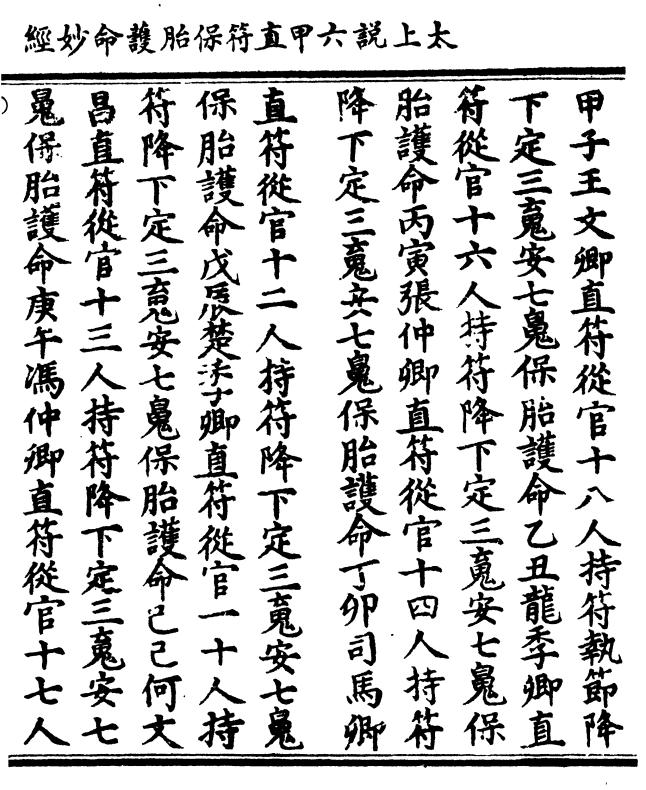 太上說六甲直符保胎護命妙經
甲子王文卿直符從官十八人持符執節降
下定三䰟安七䰟保胎護命乙丑龍季卿直
符從官十六人持符降下定三䰟安七䰟保
胎護命丙寅張仲卿直符從官十四人持符
降下定三䰟安七䰟保胎護命丁卯司馬卿
直符從官十二人持符降下定三䰟安七䰟
保胎護命戊辰楚季卿直符從官一十人持
符降下定三䰟安七䰟保胎護命己巳何文
昌直符從官十三人持符降下定三䰟安七
䰟保胎護命庚午馮仲卿直符從官十七人